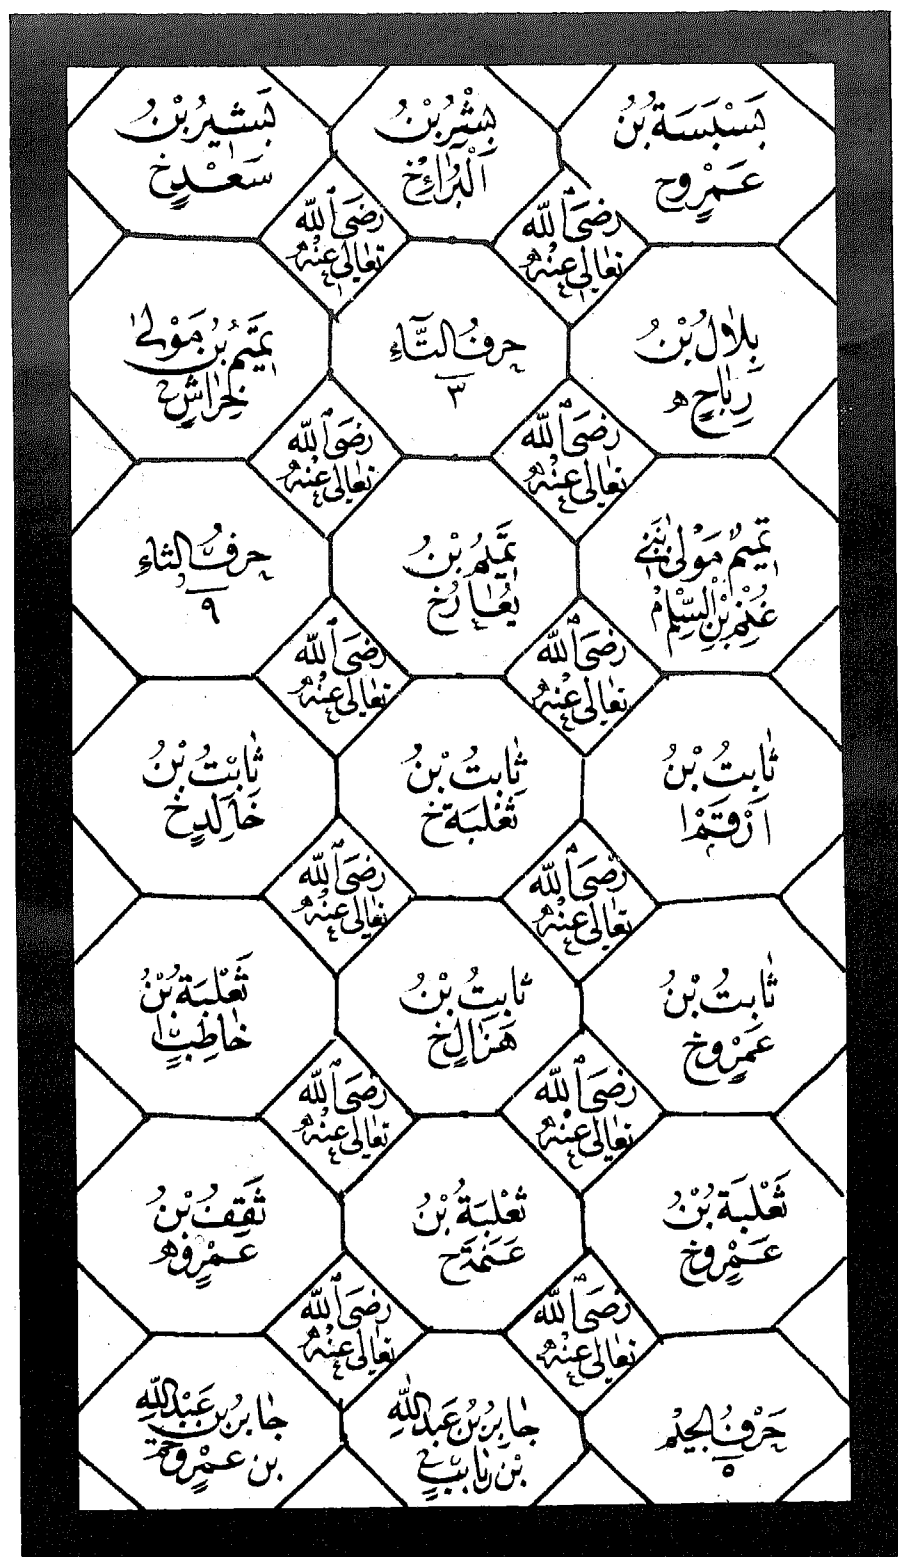 بَسْبَسَة بْنُ
عَمْرٍو خ
بِشْرُ بْنُ
الْبَرَاءِ خ
بَشِيرُ بْنُ
سَعْدٍ خ
رَضِىَ اللّٰه
تَعَالٰى عَنْهُ
رَضِىَ اللّٰه
تَعَالٰى عَنْهُ
بِلَالُ بْنُ
رِبَاحٍ ه
حرفُ التَّاءِ
٣
تَمِيمُ بْنُ مَوْلٰى
خِرَاشٍ خ
رَضِىَ اللّٰه
تَعَالٰى عَنْهُ
رَضِىَ اللّٰه
تَعَالٰى عَنْهُ
تَمِيمٌ مَوْلٰى بَنِى
غُنْمِ بْنِ السِّلْمِ
تَمِيمُ بْنُ
يُعَارَ خ
حرفُ الثاءِ
٩
رَضِىَ اللّٰه
تَعَالٰى عَنْهُ
رَضِىَ اللّٰه
تَعَالٰى عَنْهُ
ثَابِتُ بْنُ
اَرْقَمْ ا
ثَابِتُ بْنُ
ثَعْلَبَة خ
ثَابِتُ بْنُ
خَالِدٍ خ
رَضِىَ اللّٰه
تَعَالٰى عَنْهُ
رَضِىَ اللّٰه
تَعَالٰى عَنْهُ
ثَابِتُ بْنُ
عَمْرٍو خ
ثَابِتُ بْنُ
هَزَالٍ خ
ثَعْلَبَة بْنُ
حَاطِبٍ ا
رَضِىَ اللّٰه
تَعَالٰى عَنْهُ
رَضِىَ اللّٰه
تَعَالٰى عَنْهُ
ثَعْلَبَة بْنُ
عَمْرٍو خ
ثَعْلَبَة بْنُ
عَنَمَة خ
ثَقِفُ بْنُ
عَمْرٍو ه
رَضِىَ اللّٰه
تَعَالٰى عَنْهُ
رَضِىَ اللّٰه
تَعَالٰى عَنْهُ
حَرْفُ الجِيْم
٥
جَابِرُ بْنُ عَبْدِ اللّٰهِ
بْنِ رِبَابٍ خ
جَابِرُ بْنُ عَبْدِ اللّٰهِ
بْنِ عَمْرٍو خ